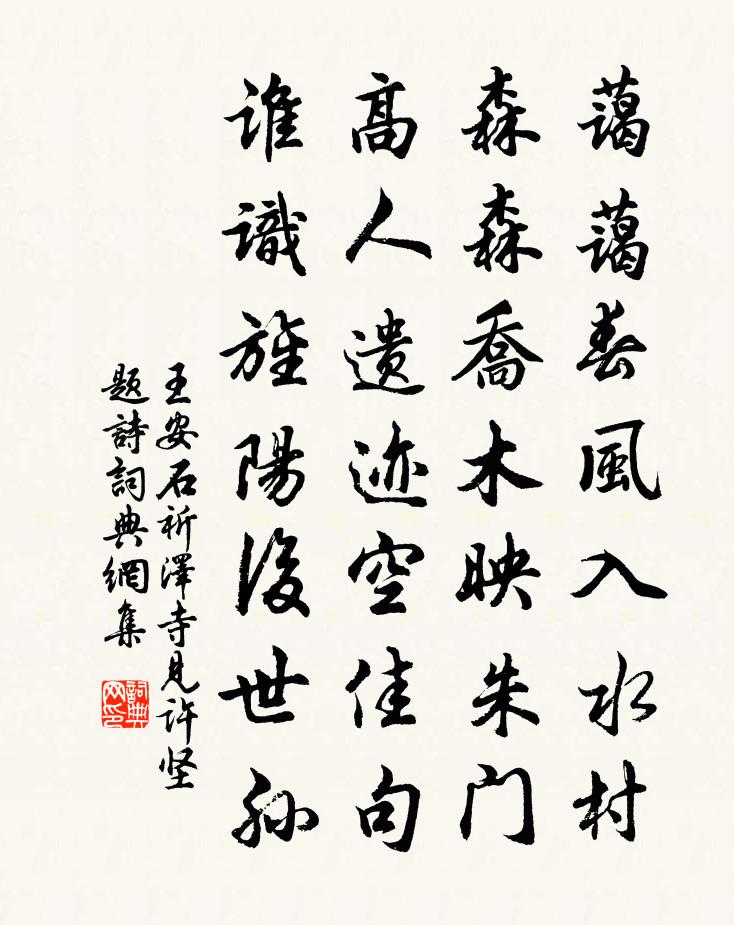 藹藹春風入水村
森森喬木映朱門
高人遗迹空佳句
誰識旌陽後世孫
王安石祈澤寺見許坚
题詩詞典網集
詞典网印